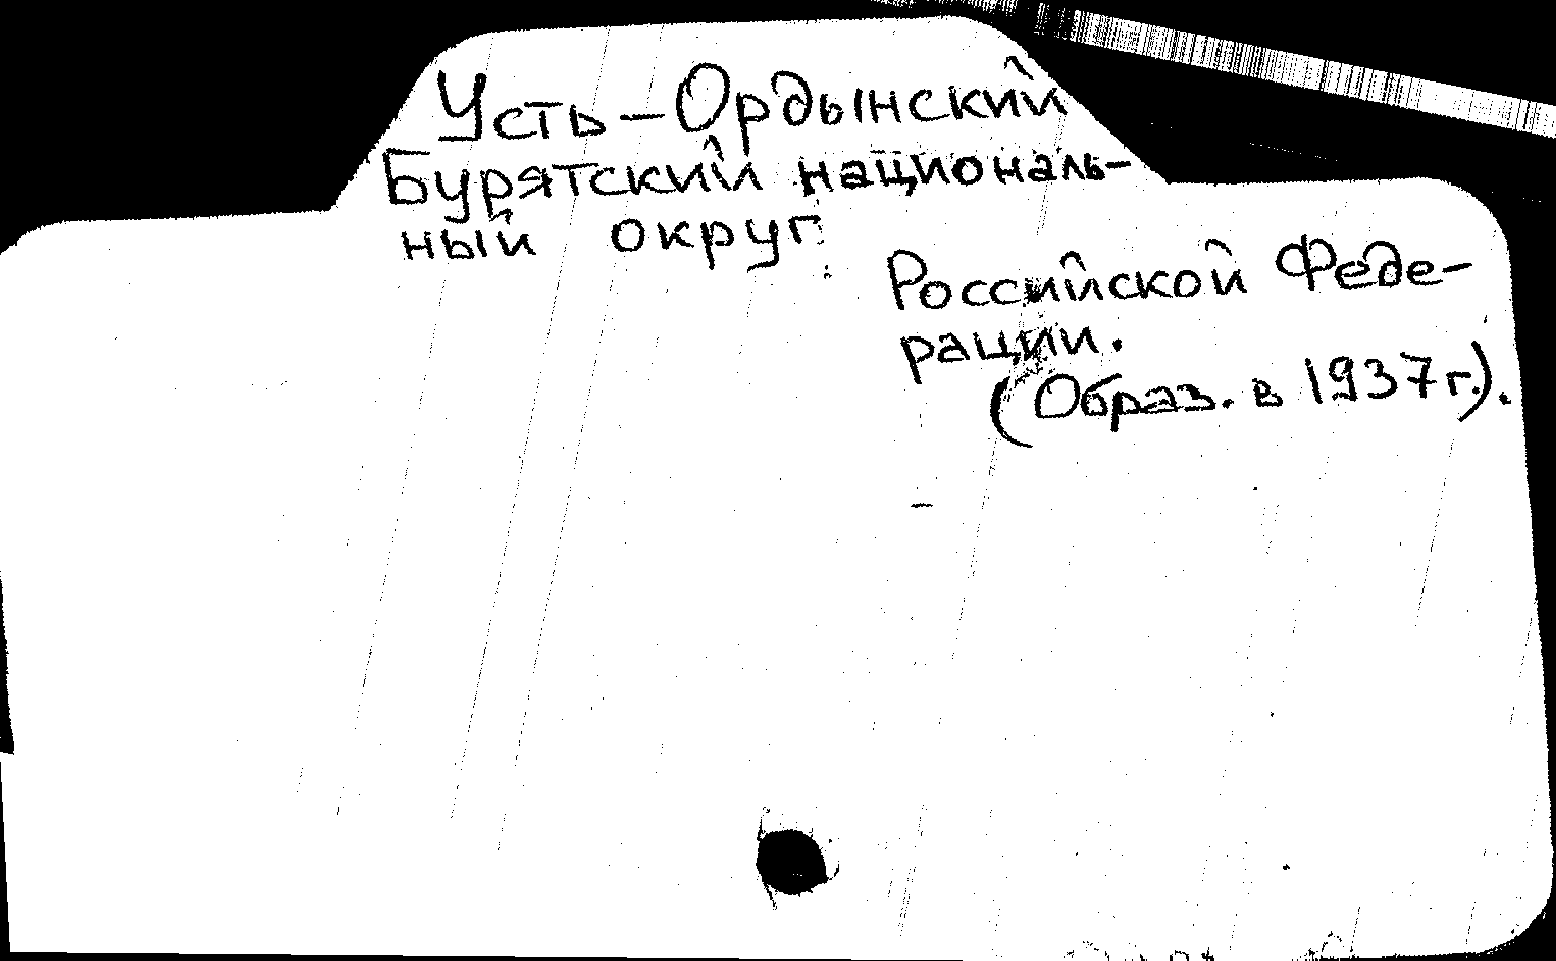 Усть-Ордынский
Бурятский националь-
ный округ
Российской Феде-
рации.
(Образ. в 1937 г.).